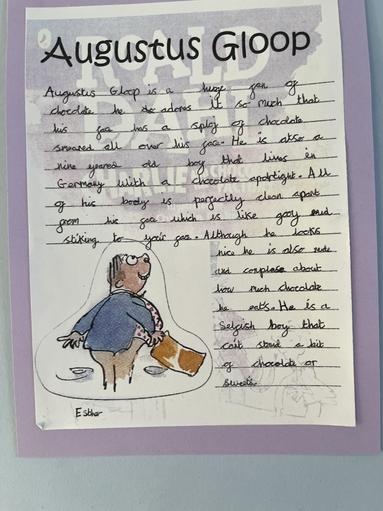 Augustus Gloop
Augustus Gloop is a huge fan of
chocolate he adores it so much that
his face has a splog of chocolate
smeared all over his face. He is also a
nine yeared old boy that lives in
Germany with a chocolate apartight. All
of his body is perfectly clean apart
from his face which is like gooy mud
stiking to your face. Although he looks
nice he is also rude
and complase about
how much chocolate
he eats. He is a
Selfish boy that
can't stand a bit
of chocolate or
sweets.
Esther
ROALD
DAHL
CHARLIE